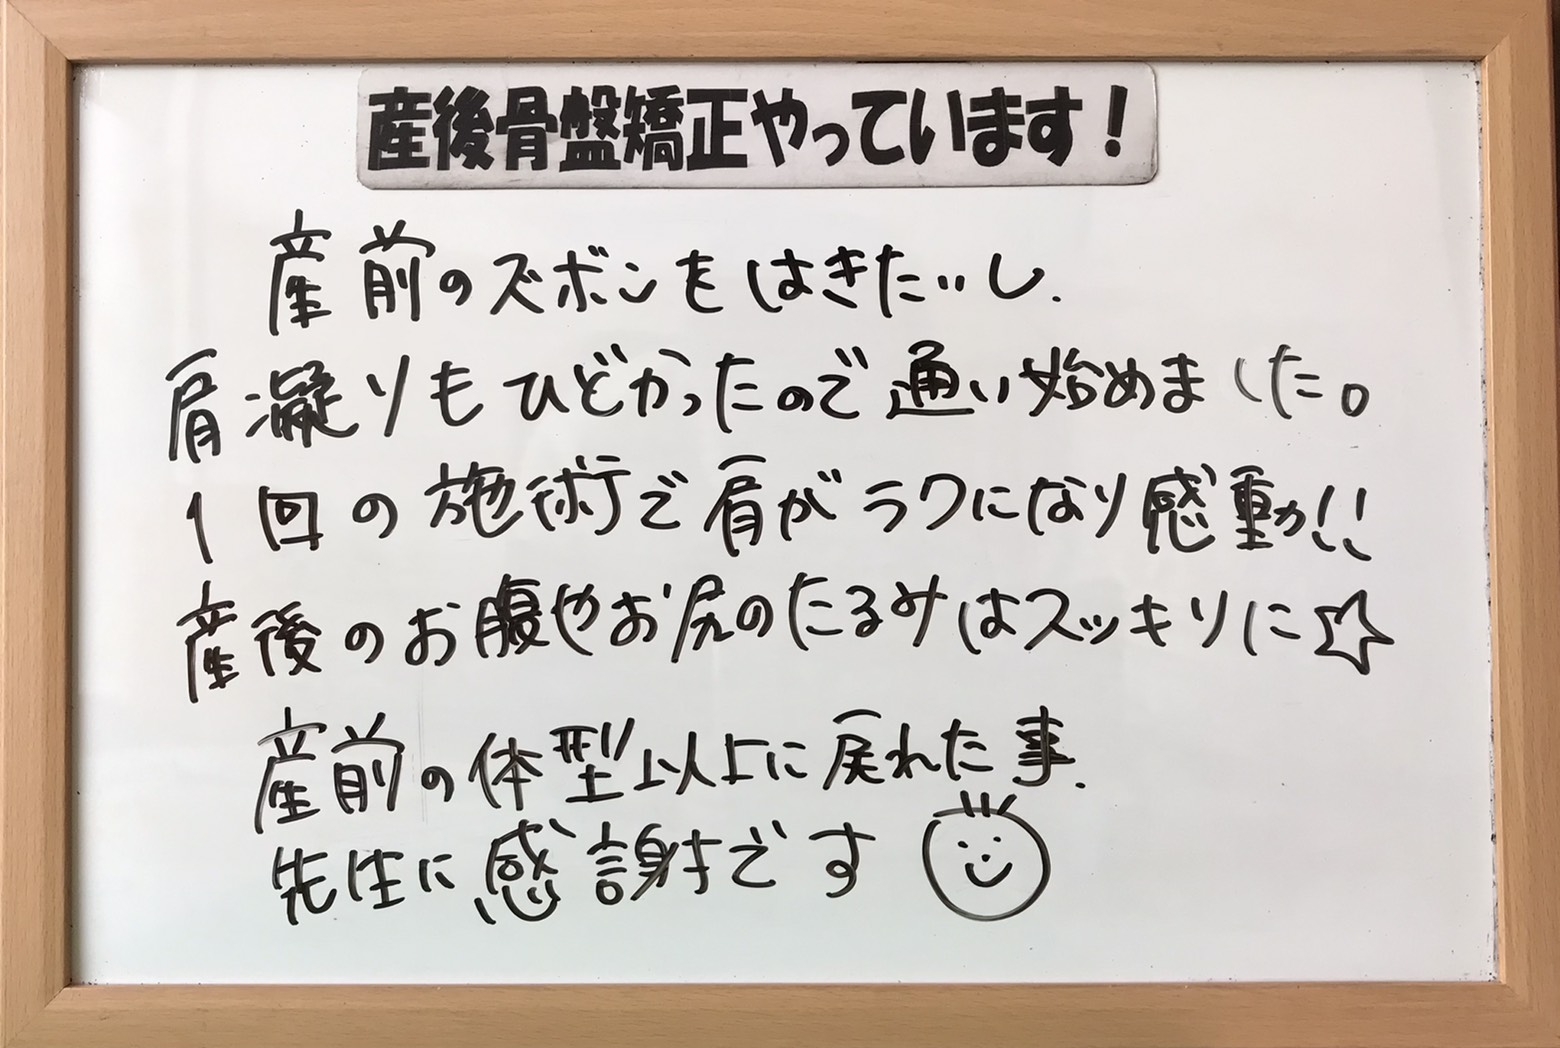 産後骨盤矯正やっています！
産前のズボンをはきたいし、
肩凝りもひどかったので通い始めました。
1回の施術で肩がラクになり感動!!
産後のお腹やお尻のたるみはスッキリに☆
産前の体型以上に戻れた事、
先生に感謝です